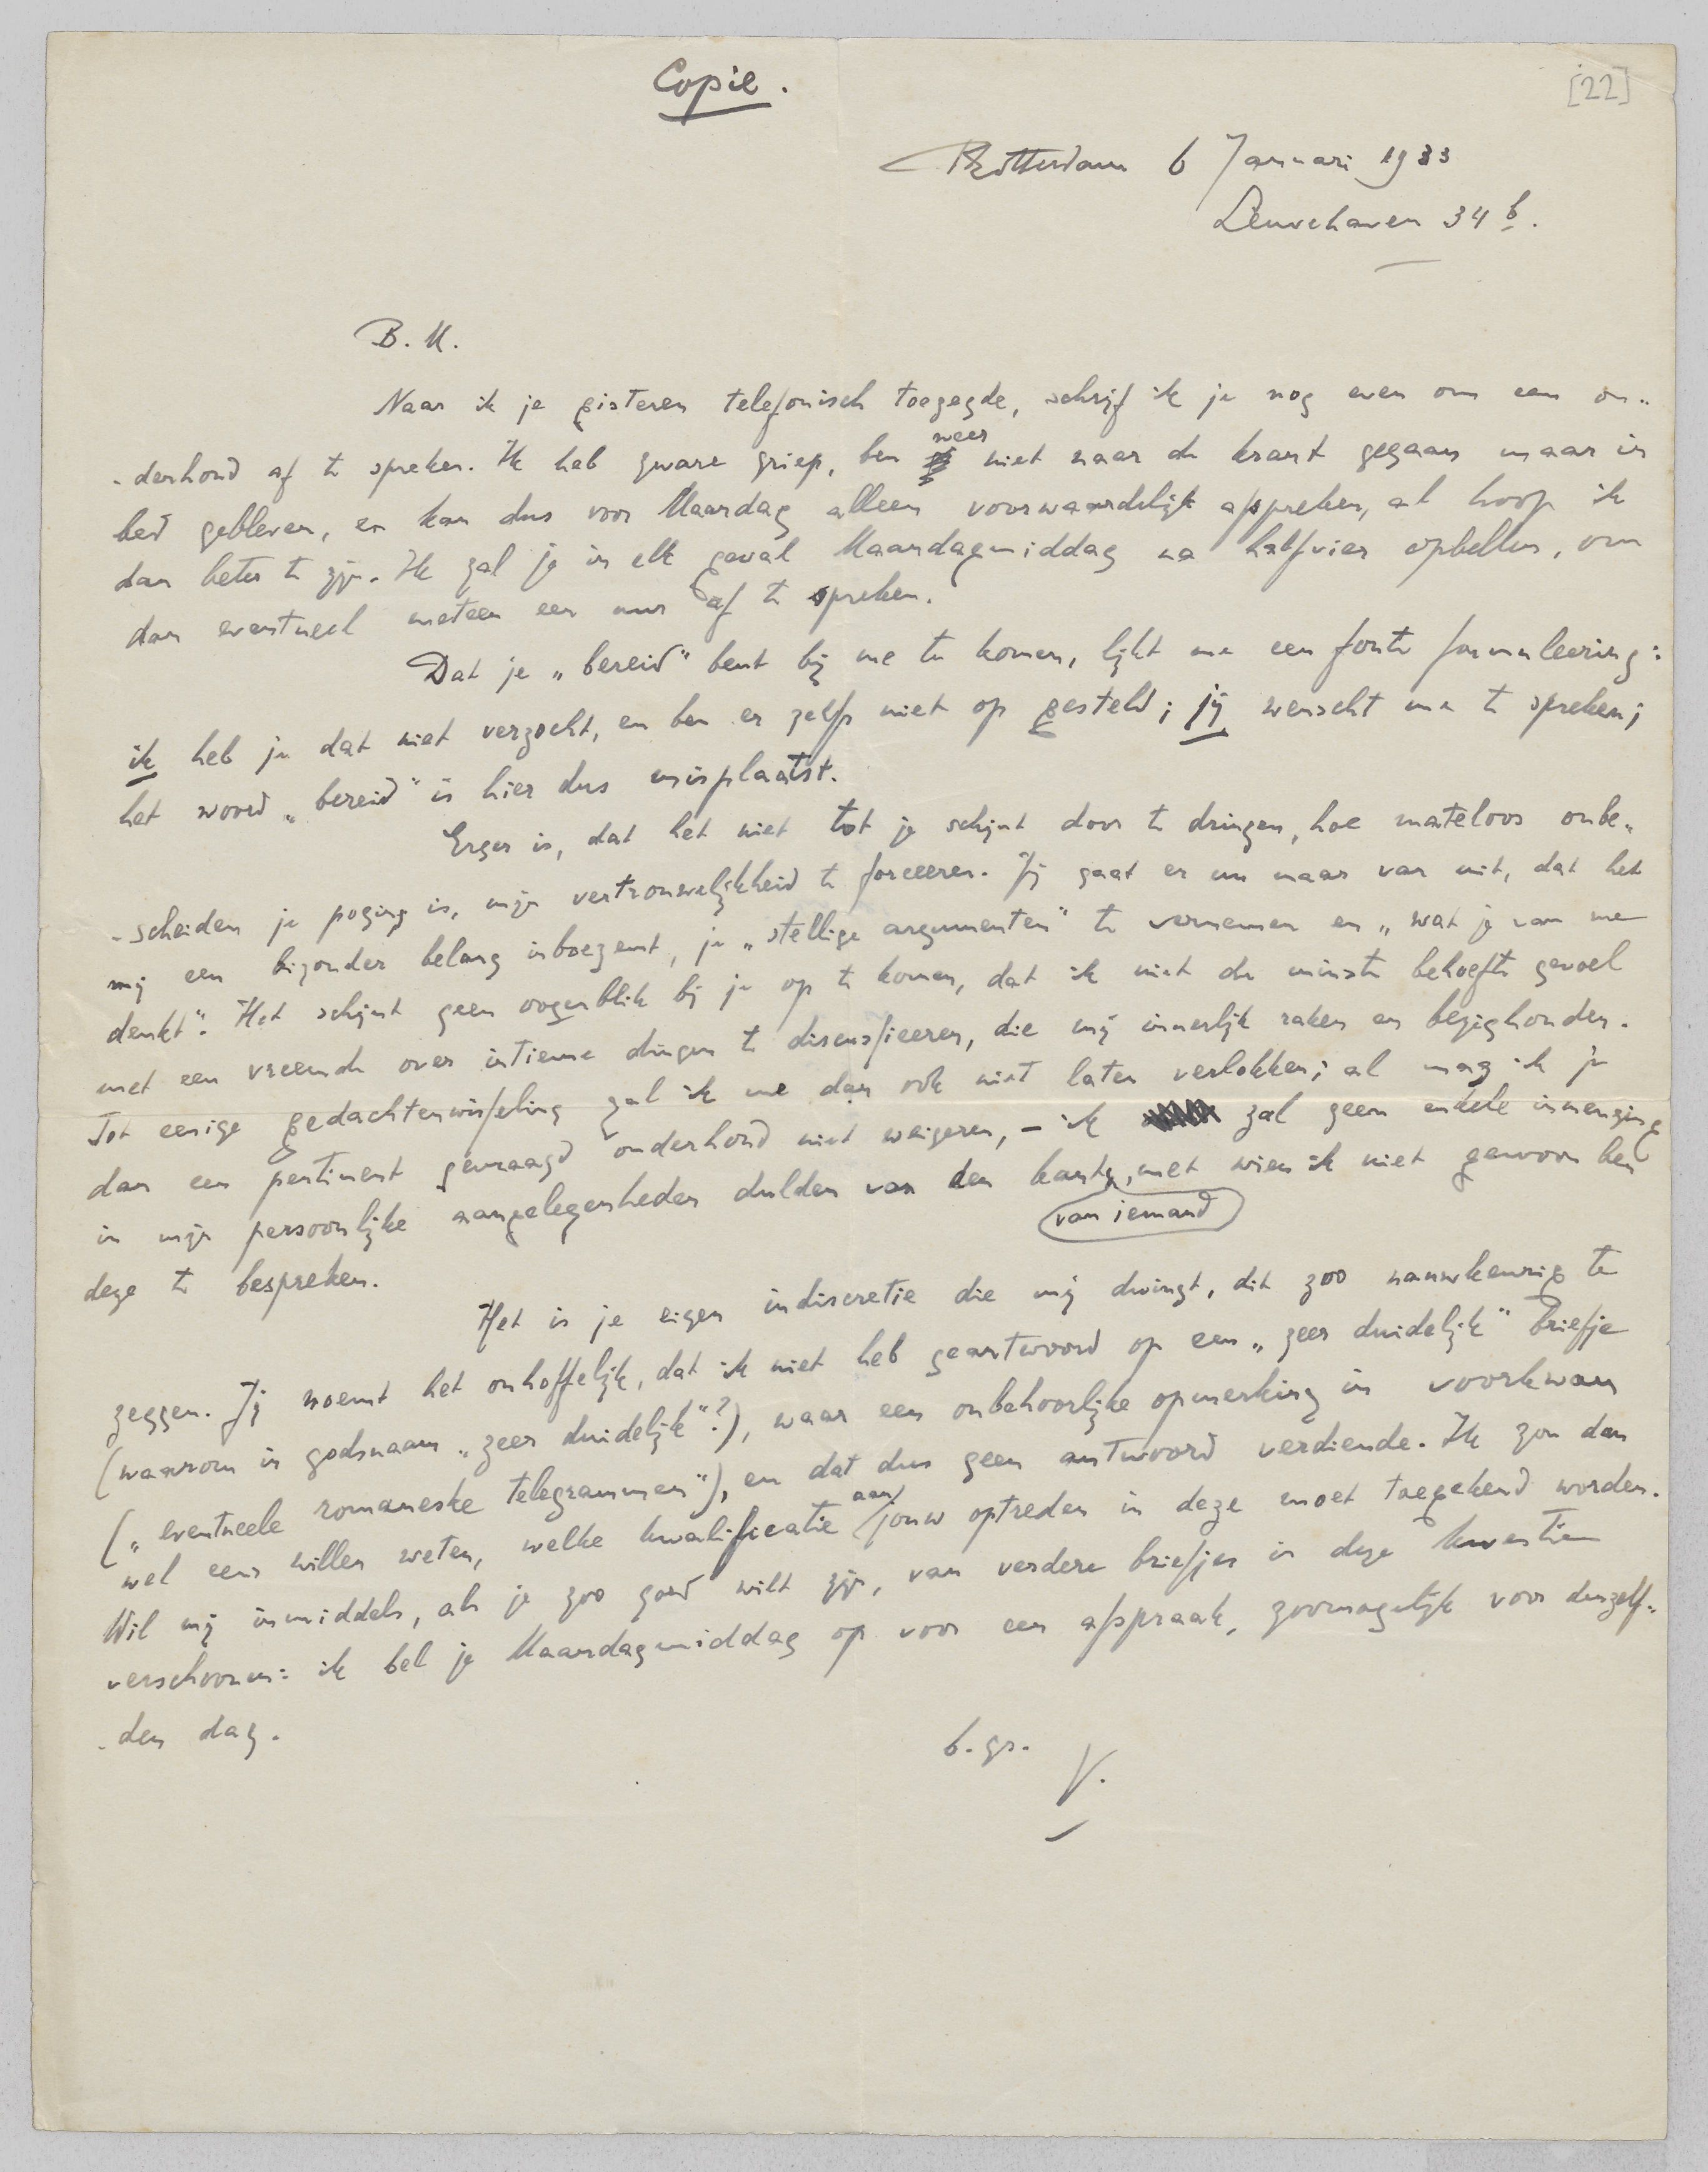 Copie.
[22]
Rotterdam 6 Januari 1933
Leuvehaven 34 b.
B. M.
Naar ik je gisteren telefonisch toezegde, schrijf ik je nog even om een on„
„derhoud af te spreken. Ik heb zware griep, ben weer niet naar de krant gegaan maar in
bed gebleven, en kan dus voor Maandag alleen voorwaardelijk afspreken, al hoop ik
dan beter te zijn. Ik zal je in elk geval Maandagmiddag na halfvier opbellen, om
dan eventueel meteen een uur af te spreken.
Dat je „bereid” bent bij me te komen, lijkt me een foute formuleering:
ik heb je dat niet verzocht, en ben er zelfs niet op gesteld; jij wenscht me te spreken;
het woord „bereid” is hier dus misplaatst.
Erger is, dat het niet tot je schijnt door te dringen, hoe mateloos onbe„
„scheiden je poging is, mijn vertrouwelijkheid te forceeren. Jij gaat er nu maar van uit, dat het
mij een bizonder belang inboezemt, je „stellige argumenten” te vernemen en „wat je van me
denkt”. Het schijnt geen oogenblik bij je op te komen, dat ik niet de minste behoefte gevoel
met een vreemde over intieme dingen te discussieeren, die mij innerlijk raken en bezighouden.
Tot eenige gedachtenwisseling zal ik me dan ook niet laten verlokken; al mag ik je
dan een pertinent gevraagd onderhoud niet weigeren, – ik zal geen enkele inmenging
in mijn persoonlijke aangelegenheden dulden van den kant, met wien ik niet gewoon ben
van iemand
deze te bespreken.
Het is je eigen indiscretie die mij dwingt, dit zoo nauwkeurig te
zeggen. Jij noemt het onhoffelijk, dat ik niet heb geantwoord op een „zeer duidelijk” briefje
(waarom in godsnaam „zeer duidelijk”?), waar een onbehoorlijke opmerking in voorkwam
(„eventueele romaneske telegrammen”), en dat dus geen antwoord verdiende. Ik zou dan
wel eens willen weten, welke kwalificatie aan jouw optreden in deze moet toegekend worden.
Wil mij inmiddels, als je zoo goed wilt zijn, van verdere briefjes in deze kwestie
verschoonen: ik bel je Maandagmiddag op voor een afspraak, zoomogelijk voor denzelf„
„den dag.
b. gr.
V.